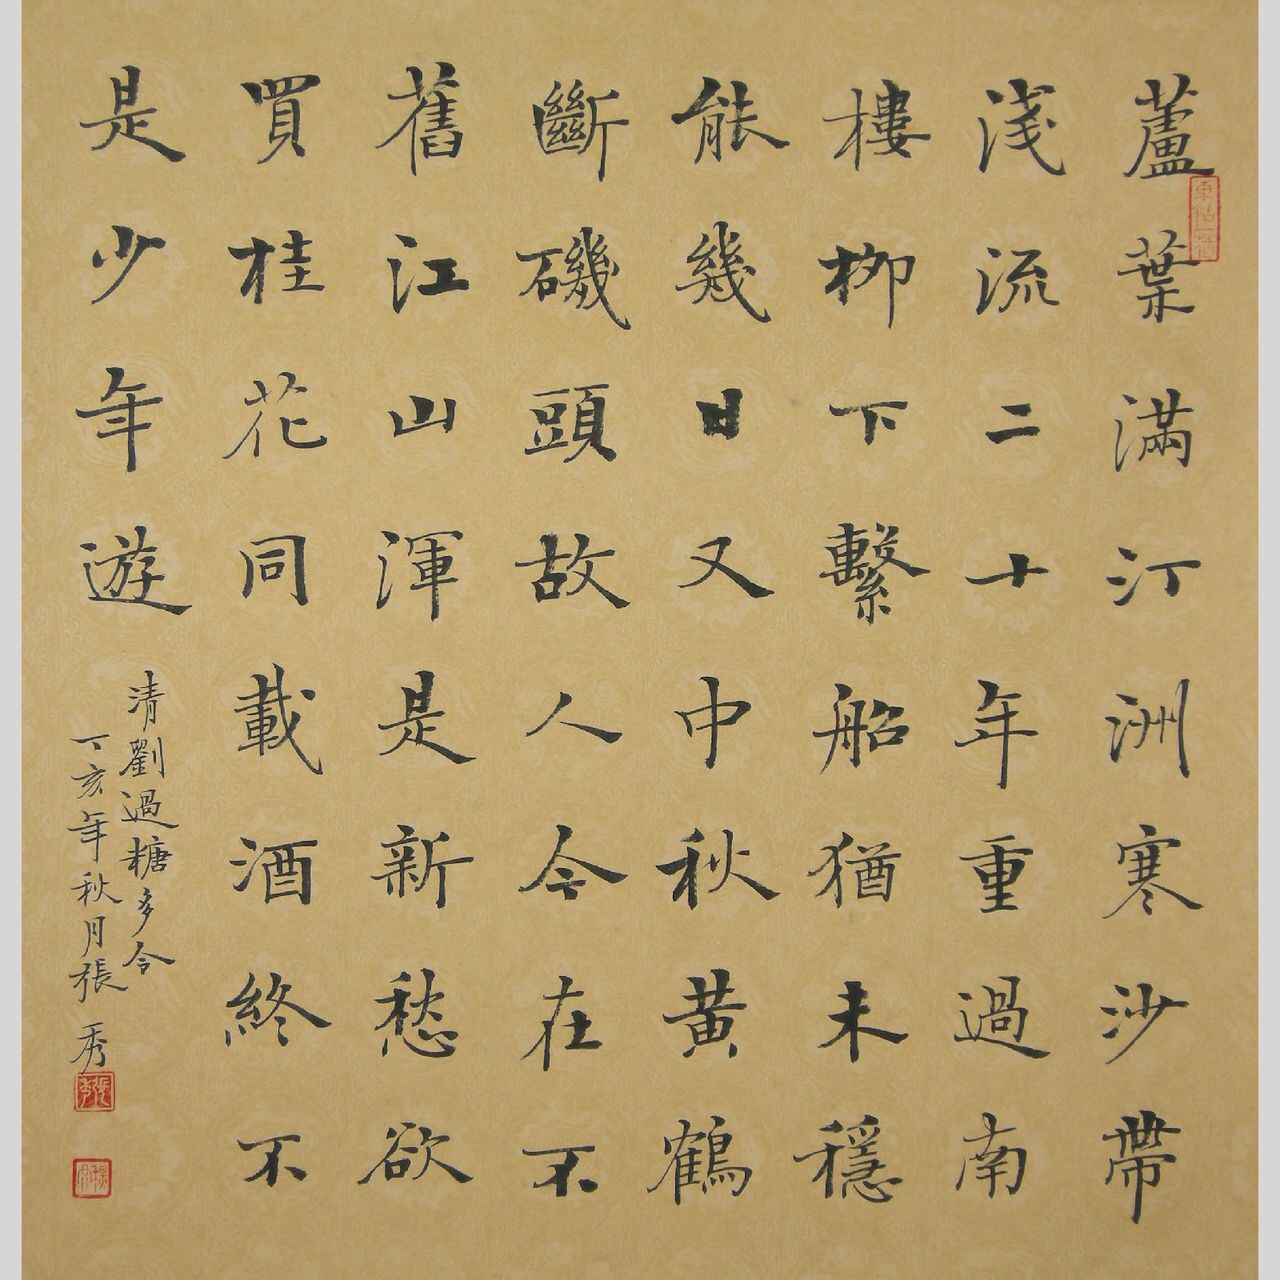 蘆葉滿汀洲寒沙帶
淺流二十年重過南
樓柳下繫船猶未穩
能幾日又中秋黃鶴
斷磯頭故人今在不
舊江山渾是新愁欲
買桂花同載酒終不
是少年遊
清劉過糖多令
丁亥年秋月張秀